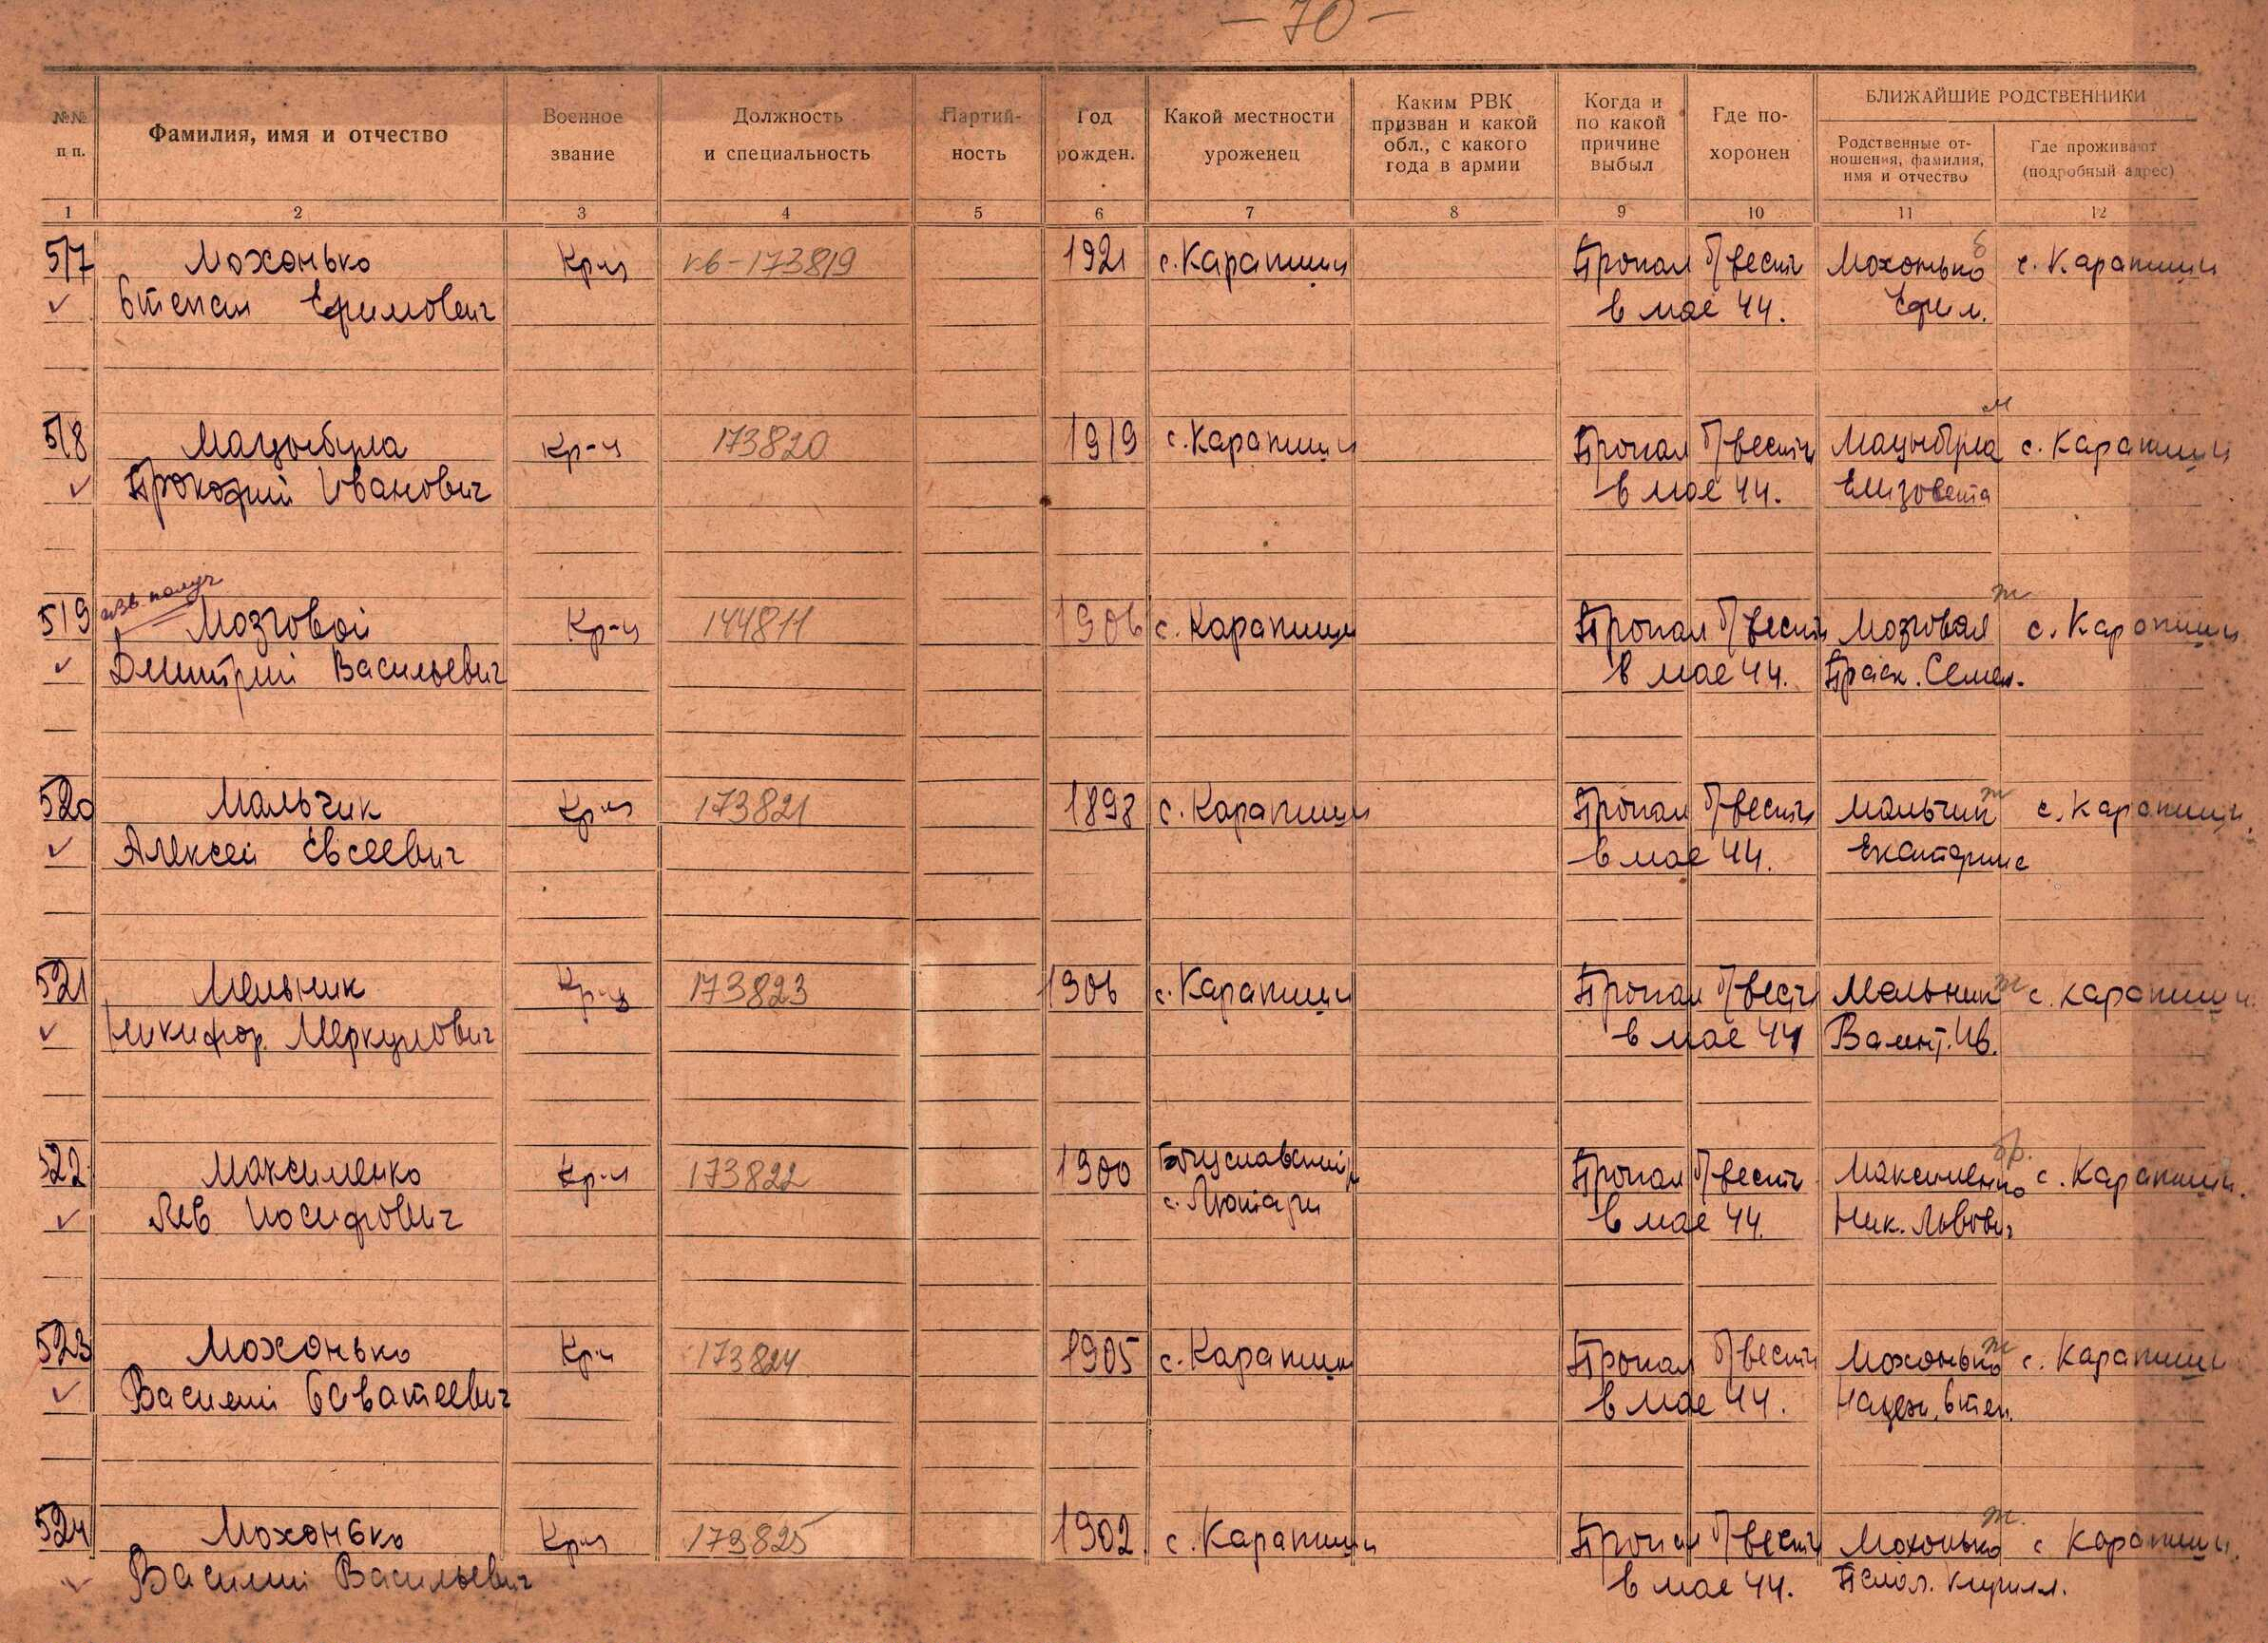 — 70 —
№№ п п.
Фамилия, имя и отчество
Военное звание
Должность и специальность
Партий- ность
Год рожден.
Какой местности уроженец
Каким РВК призван и какой обл., с какого года в армии
Когда и по какой причине выбыл
Где по- хоронен
БЛИЖАЙШИЕ РОДСТВЕННИКИ
Родственные от- ношения, фамилия, имя и отчество
Где проживают (подробный адрес)
1 2 3 4 5 6 7 8 9 10 11 12
517 Мохонько Кр-ц кв-173819 1921 с. Карапиши Пропал б/вести Мохонько с. Карапиши
Степан Ефимович в мае 44. Ефим.
518 Мацыбула Кр-ц 173820 1919 с. Карапиши Пропал б/вести Мацыбула с. Карапиши
Прокофий Иванович в мае 44. Елизовета
изв. получ
519 Мозговой Кр-ц 144811 1906 с. Карапиши Пропал б/вести Мозговая с. Карапиши
Дмитрий Васильевич в мае 44. Праск. Семен.
520 Мальчик Кр-ц 173821 1898 с. Карапиши Пропал б/вести Мальчик с. Карапиши
Алексей Евсеевич в мае 44. Екатарина
521 Мельник Кр-ц 173823 1906 с. Карапиши Пропал б/вести Мельник с. Карапиши
Никифор Меркулович в мае 44 Валент. Ив.
522 Максименко Кр-ц 173822 1900 Богуславский Пропал б/вести Максименко бр. с. Карапиши.
Лев Иосифович с. Лютари в мае 44. Ник. Львович
523 Мохонько Кр-ц 173824 1905 с. Карапиши Пропал б/вести Мохонько с. Карапиши
Василий Саватеевич в мае 44. Надеж. Степ.
524 Мохонько Кр-ц 173825 1902 с. Карапиши Пропал б/вести Мохонько с Карапиши.
Василий Васильевич в мае 44. Кирилл.